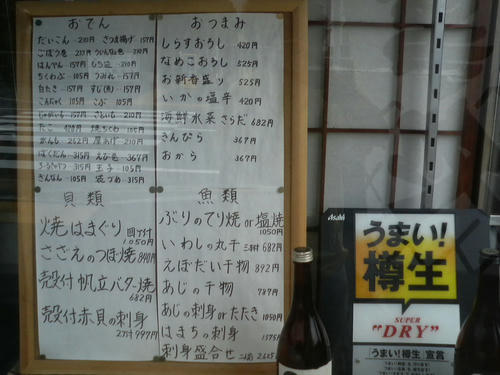 おでん
だいこん 210円 さつま揚げ 157円
ごぼう巻
はんぺん 157円
ちくわぶ 105円 つみれ 157円
白たき 157円 すじ(魚) 157円
こんぶ 105円
じゃがいも 157円 さといも 210円
たこ 焼ちくわ 105円
がんも 252円 厚あげ 210円
ばくだん 315円 えび巻 367円
玉子 105円
袋づめ 315円
おつまみ
しらすおろし 420円
なめこおろし 525円
お新香盛り 525円
いかの塩辛 420円
海鮮水菜さらだ 682円
きんぴら 367円
おから 367円
貝類
焼はまぐり 1050円
さざえのつぼ焼 840円
殻付帆立バター焼 682円
殻付赤貝の刺身 997円
魚類
ぶりのてり焼 or 塩焼 1050円
いわしの丸干 682円
えぼだい干物 892円
あじの干物 787円
あじの刺身 or たたき 1050円
はまちの刺身 1575円
刺身盛合せ
Asahi
うまい!
樽生
SUPER
"DRY"
「うまい!樽生」宣言